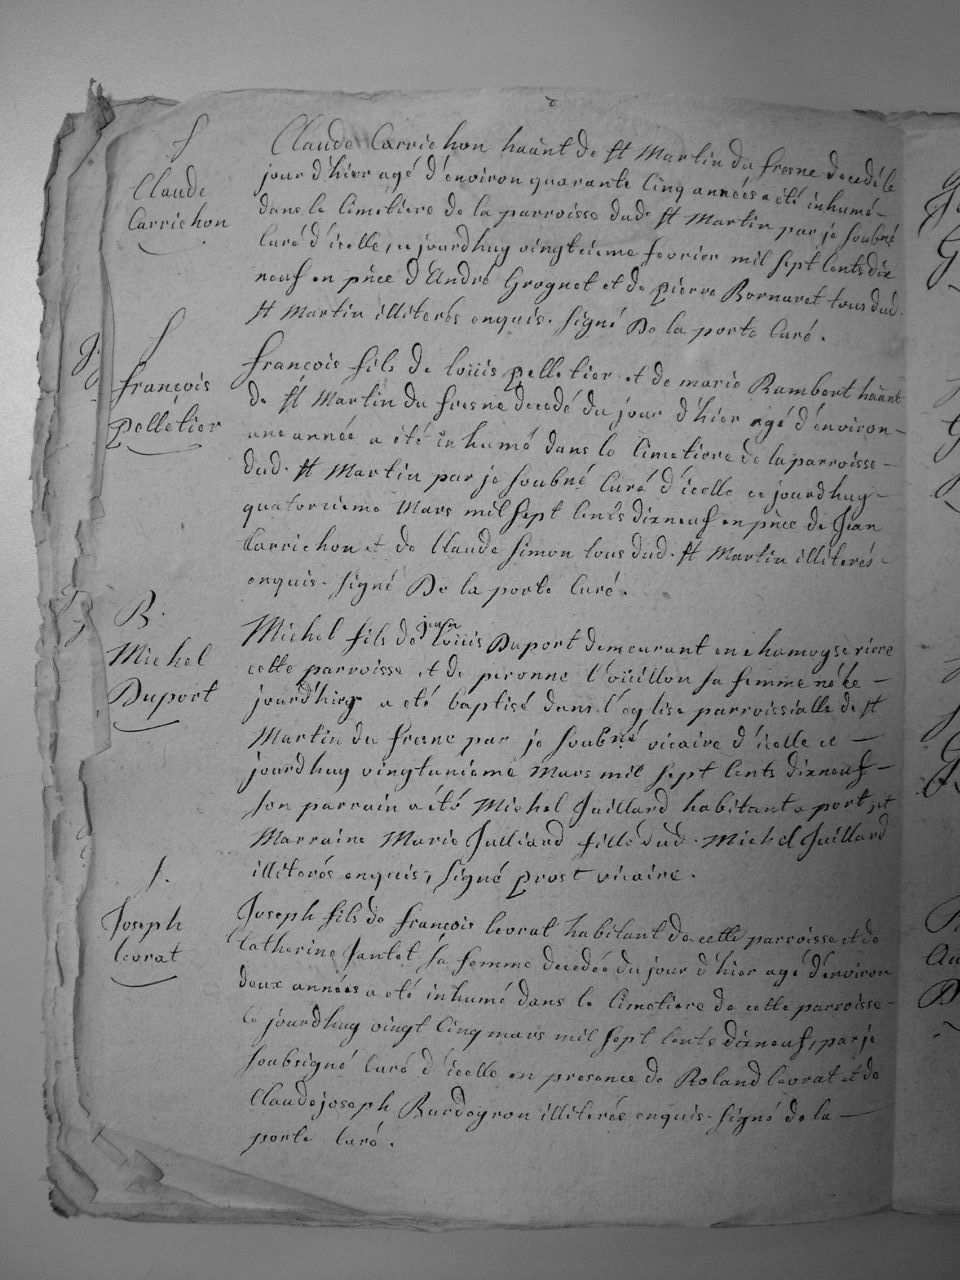 S
Claude
Carrichon
Claude Carrichon haãnt de st Martin du fresne decedé le
jour d'hier agé d'environ quarante Cinq années a été inhumé -
dans le Cimitiere de la parroisse dud. st Martin par je soubné
Curé d'icelle, ce jourdhuy vingtieme fevrier mil sept Cents dix
neuf en pñce d'André Grognet et de pierre Bornaret tous dud.
st Martin illiterés enquis. signé De la porte Curé.
S
françois
pelletier
françois fils de loüis pelletier et de marie Rambert haãnt
de st Martin du fresne decedé du jour d'hier agé d'environ -
une année a été inhumé dans le Cimetiere de la parroisse -
dud. st Martin par je soubné Curé d'icelle ce jourdhuy -
quatorzieme Mars mil sept Cents dixneuf en pñce de Jean
Carrichon et de Claude Simon tous dud. st Martin illiterés -
enquis. signé De la porte Curé.
B.
Michel
Duport
Michel fils de jean loüis Duport demeurant en chamoyseriere
cette parroisse et de peronne l'oüillon sa femme né le -
jourd'hier a été baptisé dans l'eglise parroissialle de st
Martin du fresne par je soubné vicaire d'icelle ce -
jourdhuy vingtunieme Mars mil sept Cents dixneuf -
son parrain a été Michel Juillard habitant a port, et
Marraine Marie Julliard fille dud. Michel Juillard
illiterés enquis, signé prost vicaire.
S.
Joseph
levrat
Joseph fils de françois levrat habitant de cette parroisse et de
Catherine Jantet sa femme decedée du jour d'hier agé d'environ
deux années a été inhumé dans le Cimetiere de cette parroisse -
Ce jourdhuy vingt Cinq mars mil sept Cents dixneuf, par je
soubsigné Curé d'icelle en presence de Roland levrat et de
Claudejoseph Burdegron illiterés enquis. signé de la -
porte Curé.